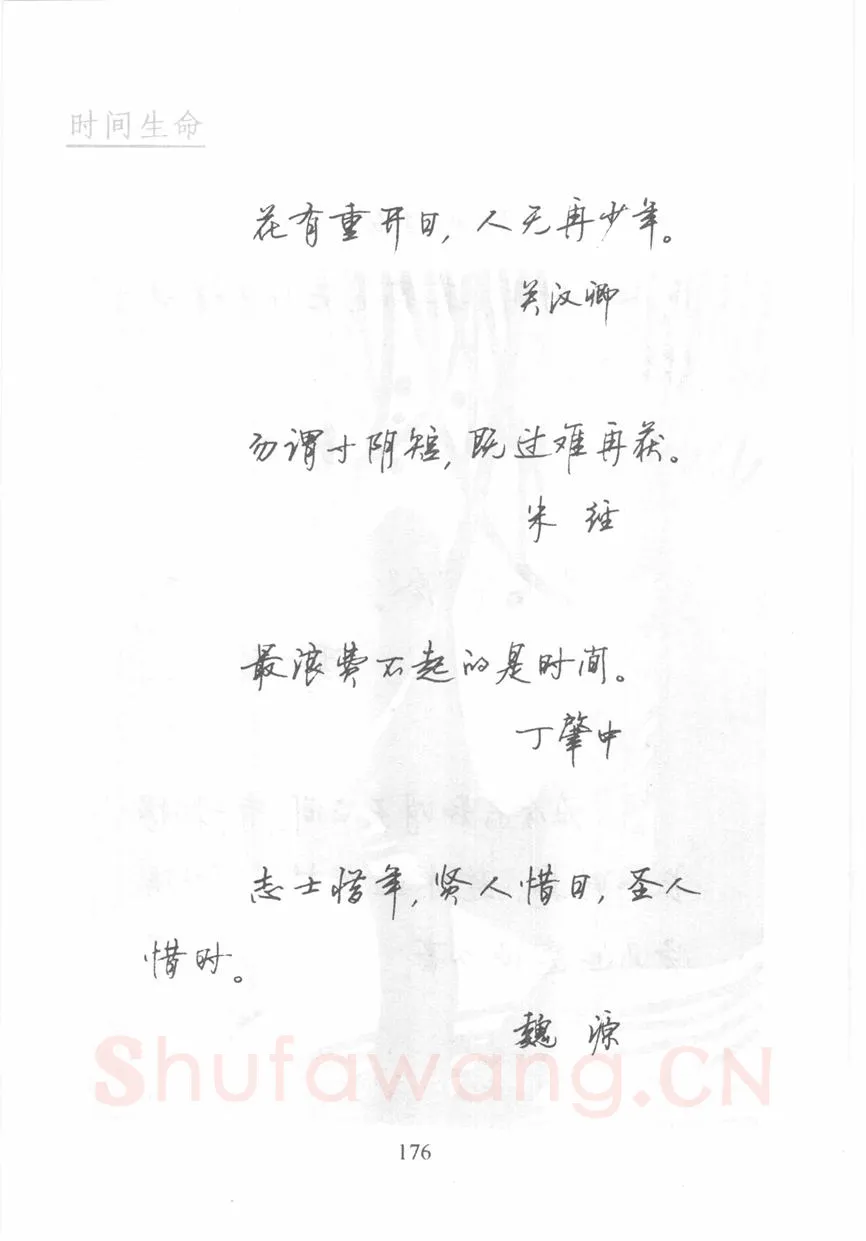 时间生命
花有重开日，人无再少年。
关汉卿
勿谓寸阴短，既过难再获。
朱 经
最浪费不起的是时间。
丁肇中
志士惜年，贤人惜日，圣人
惜时。
魏 源
Shufawang.CN
176